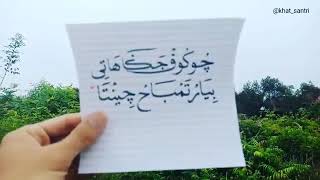 @khat_santri
چوكوف جڬا هاتي
بيار تمباح چينتا